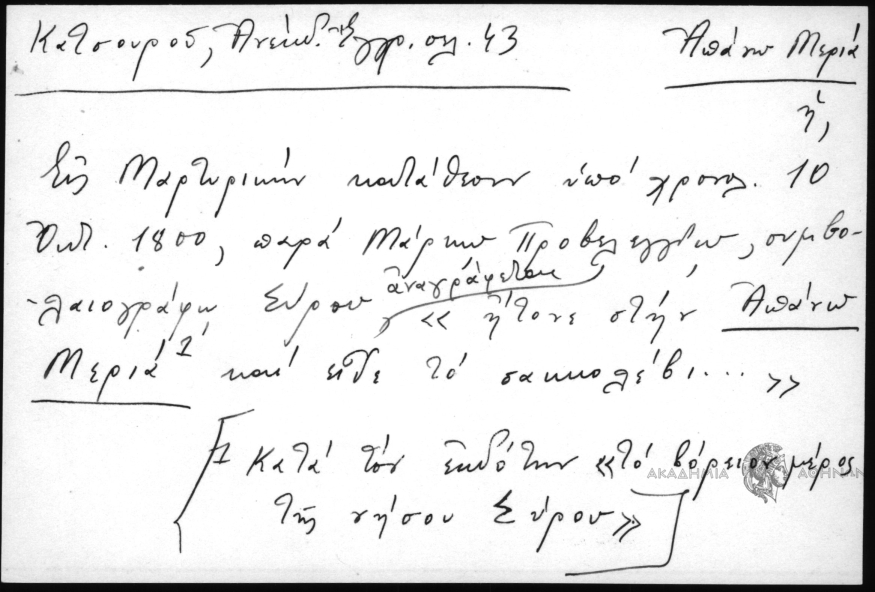 Κατσουροῦ, Ἀνέκδ. Ἔγγρ. σελ. 43
Ἀπάνω Μεριά
ἡ,
Εἰς Μαρτυρικήν κατάθεσιν ὑπό χρονολ. 10
Ὀκτ. 1800, παρά Μάρκω Προβελεγγίω, συμβο-
-λαιογράφω Σύρου ἀναγράφεται « ἤτονε στήν Ἀπάνω
Μεριά¹ καί εἶδε τό σακκολέβι... »
[1 Κατά τόν ἐκδότην «τό βόρειον μέρος
τῆς νήσου Σύρου»]
ΑΚΑΔΗΜΙΑ ΑΘΗΝΩΝ